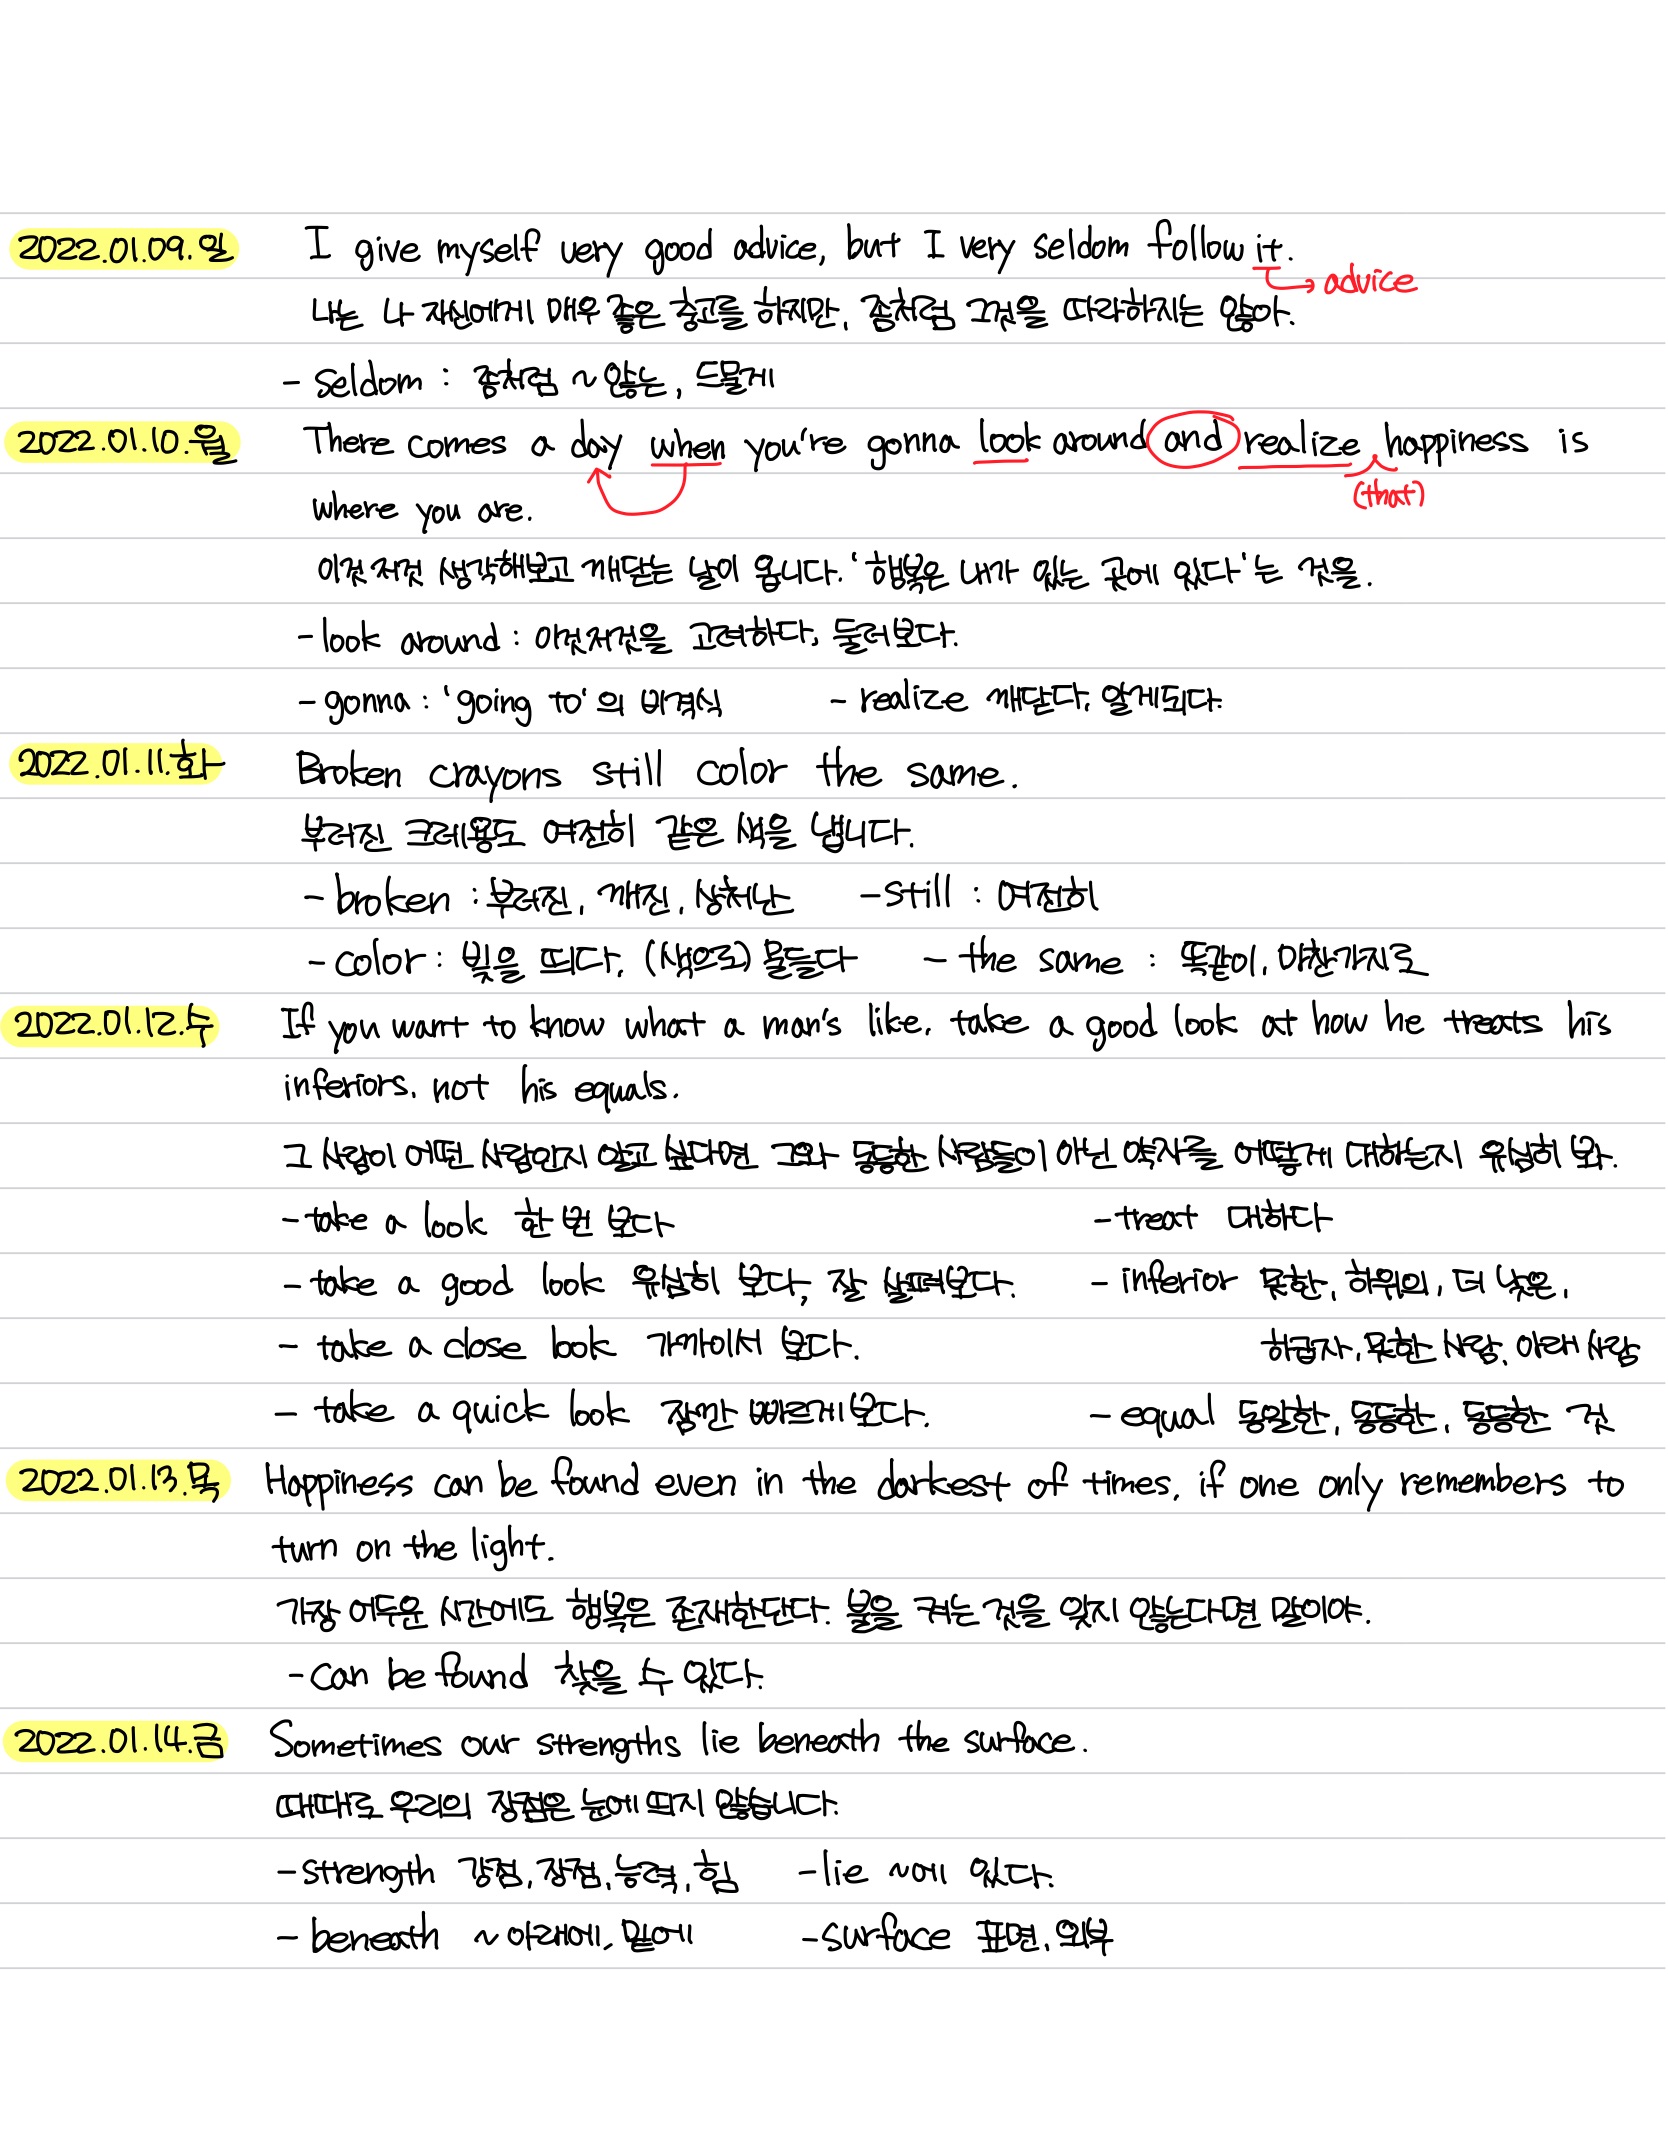 2022.01.09.일 I give myself very good advice, but I very seldom follow it.
→ advice
나는 나 자신에게 매우 좋은 충고를 하지만, 좀처럼 그것을 따라하지는 않아.
- seldom : 좀처럼 ~ 않는, 드물게
2022.01.10.월 There comes a day when you're gonna look around and realize happiness is
(that)
where you are.
이것 저것 생각해보고 깨닫는 날이 옵니다. '행복은 내가 있는 곳에 있다'는 것을.
- look around : 이것저것을 고려하다, 둘러보다.
- gonna : 'going to'의 비격식 - realize 깨닫다, 알게되다.
2022.01.11.화 Broken crayons still color the same.
부러진 크레용도 여전히 같은 색을 냅니다.
- broken : 부러진, 깨진, 상처난 - still : 여전히
- color : 빛을 띄다, (색으로) 물들다 - the same : 똑같이, 마찬가지로
2022.01.12.수 If you want to know what a man's like, take a good look at how he treats his
inferiors, not his equals.
그 사람이 어떤 사람인지 알고 싶다면 그와 동등한 사람들이 아닌 약자를 어떻게 대하는지 유심히 봐.
- take a look 한 번 보다 - treat 대하다
- take a good look 유심히 보다, 잘 살펴보다. - inferior 못한, 하위의, 더 낮은,
- take a close look 가까이서 보다. 하급자, 못한 사람, 아래 사람
- take a quick look 잠깐 빠르게 보다. - equal 동일한, 동등한, 동등한 것
2022.01.13.목 Happiness can be found even in the darkest of times, if one only remembers to
turn on the light.
가장 어두운 시간에도 행복은 존재한단다. 불을 켜는 것을 잊지 않는다면 말이야.
- can be found 찾을 수 있다.
2022.01.14.금 Sometimes our strengths lie beneath the surface.
때때로 우리의 장점은 눈에 띄지 않습니다.
- strength 강점, 장점, 능력, 힘 - lie ~에 있다.
- beneath ~아래에, 밑에 - surface 표면, 외부